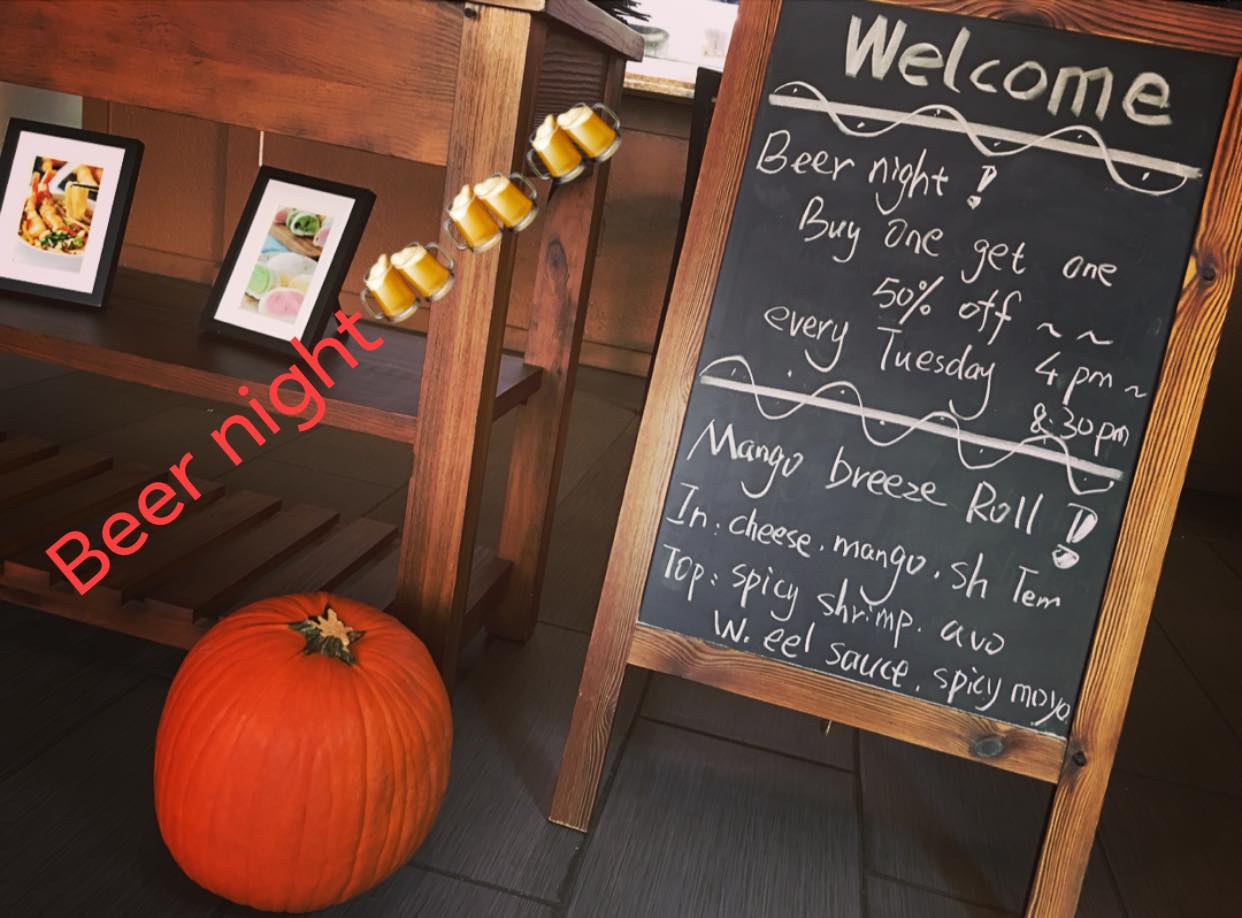 Welcome
Beer night !
Buy one get one
50% off ~ ~
every Tuesday 4pm ~
8:30pm
Mango breeze Roll !
In: cheese. mango. sh Tem
Top: spicy shrimp. avo
W. eel sauce. spicy moyo
Beer night 🍻🍻🍻